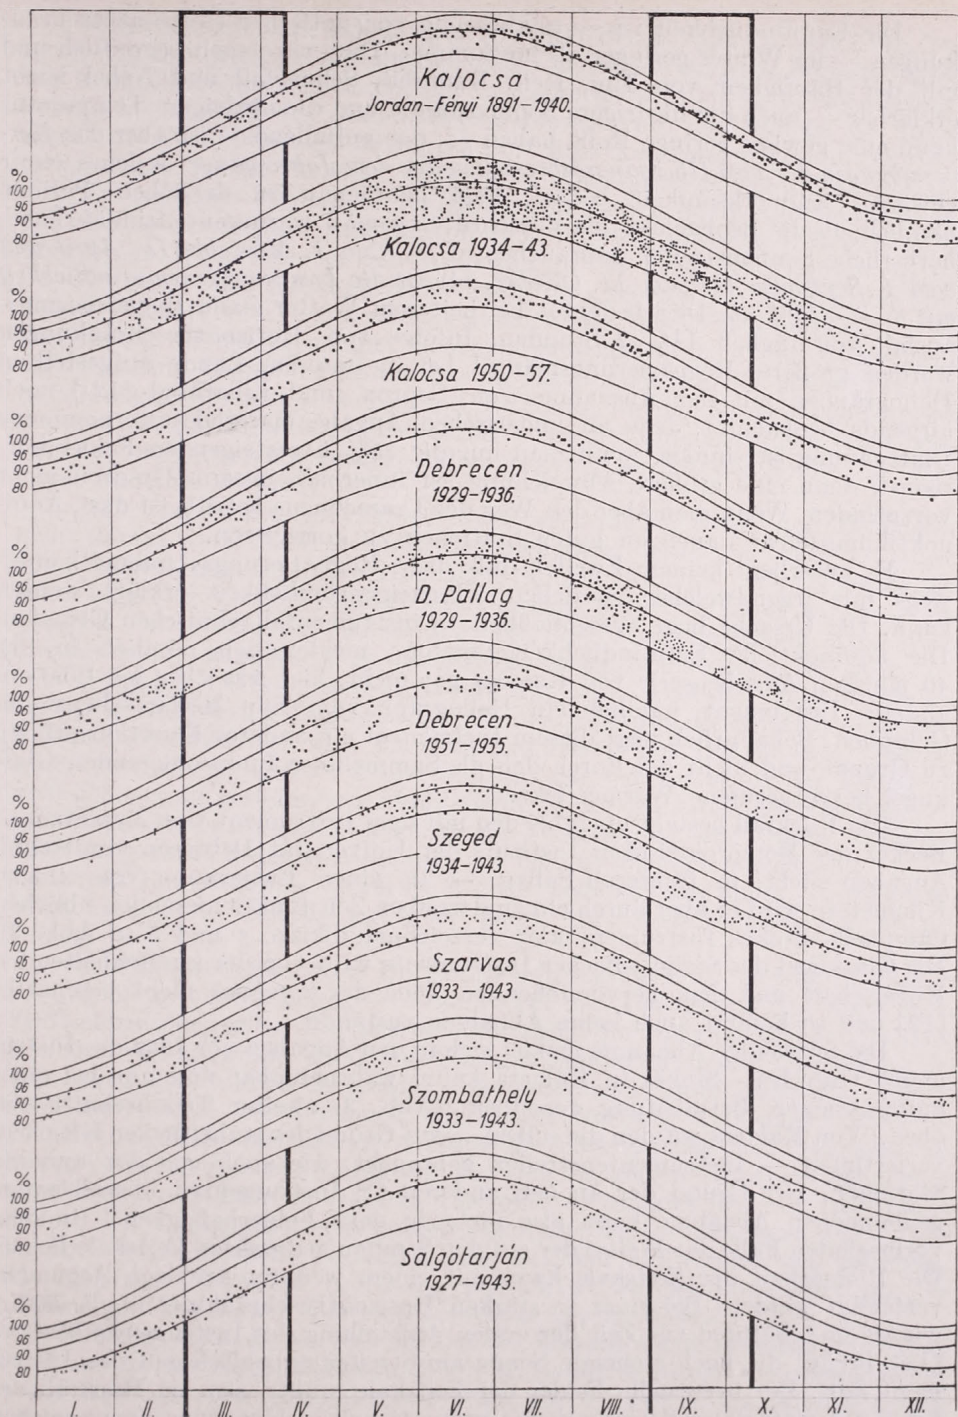 Kalocsa
Jordan-Fényi 1891-1940.
%
100
95
90
80
Kalocsa 1934-43.
%
100
95
90
80
Kalocsa 1950-57.
%
100
95
90
80
Debrecen
1929-1936.
%
100
95
90
80
D. Pallag
1929-1936.
%
100
95
90
80
Debrecen
1951-1955.
%
100
95
90
80
Szeged
1934-1943.
%
100
95
90
80
Szarvas
1933-1943.
%
100
95
90
80
Szombathely
1933-1943.
%
100
95
90
80
Salgótarján
1927-1943.
%
100
95
90
80
I. II. III. IV. V. VI. VII. VIII. IX. X. XI. XII.